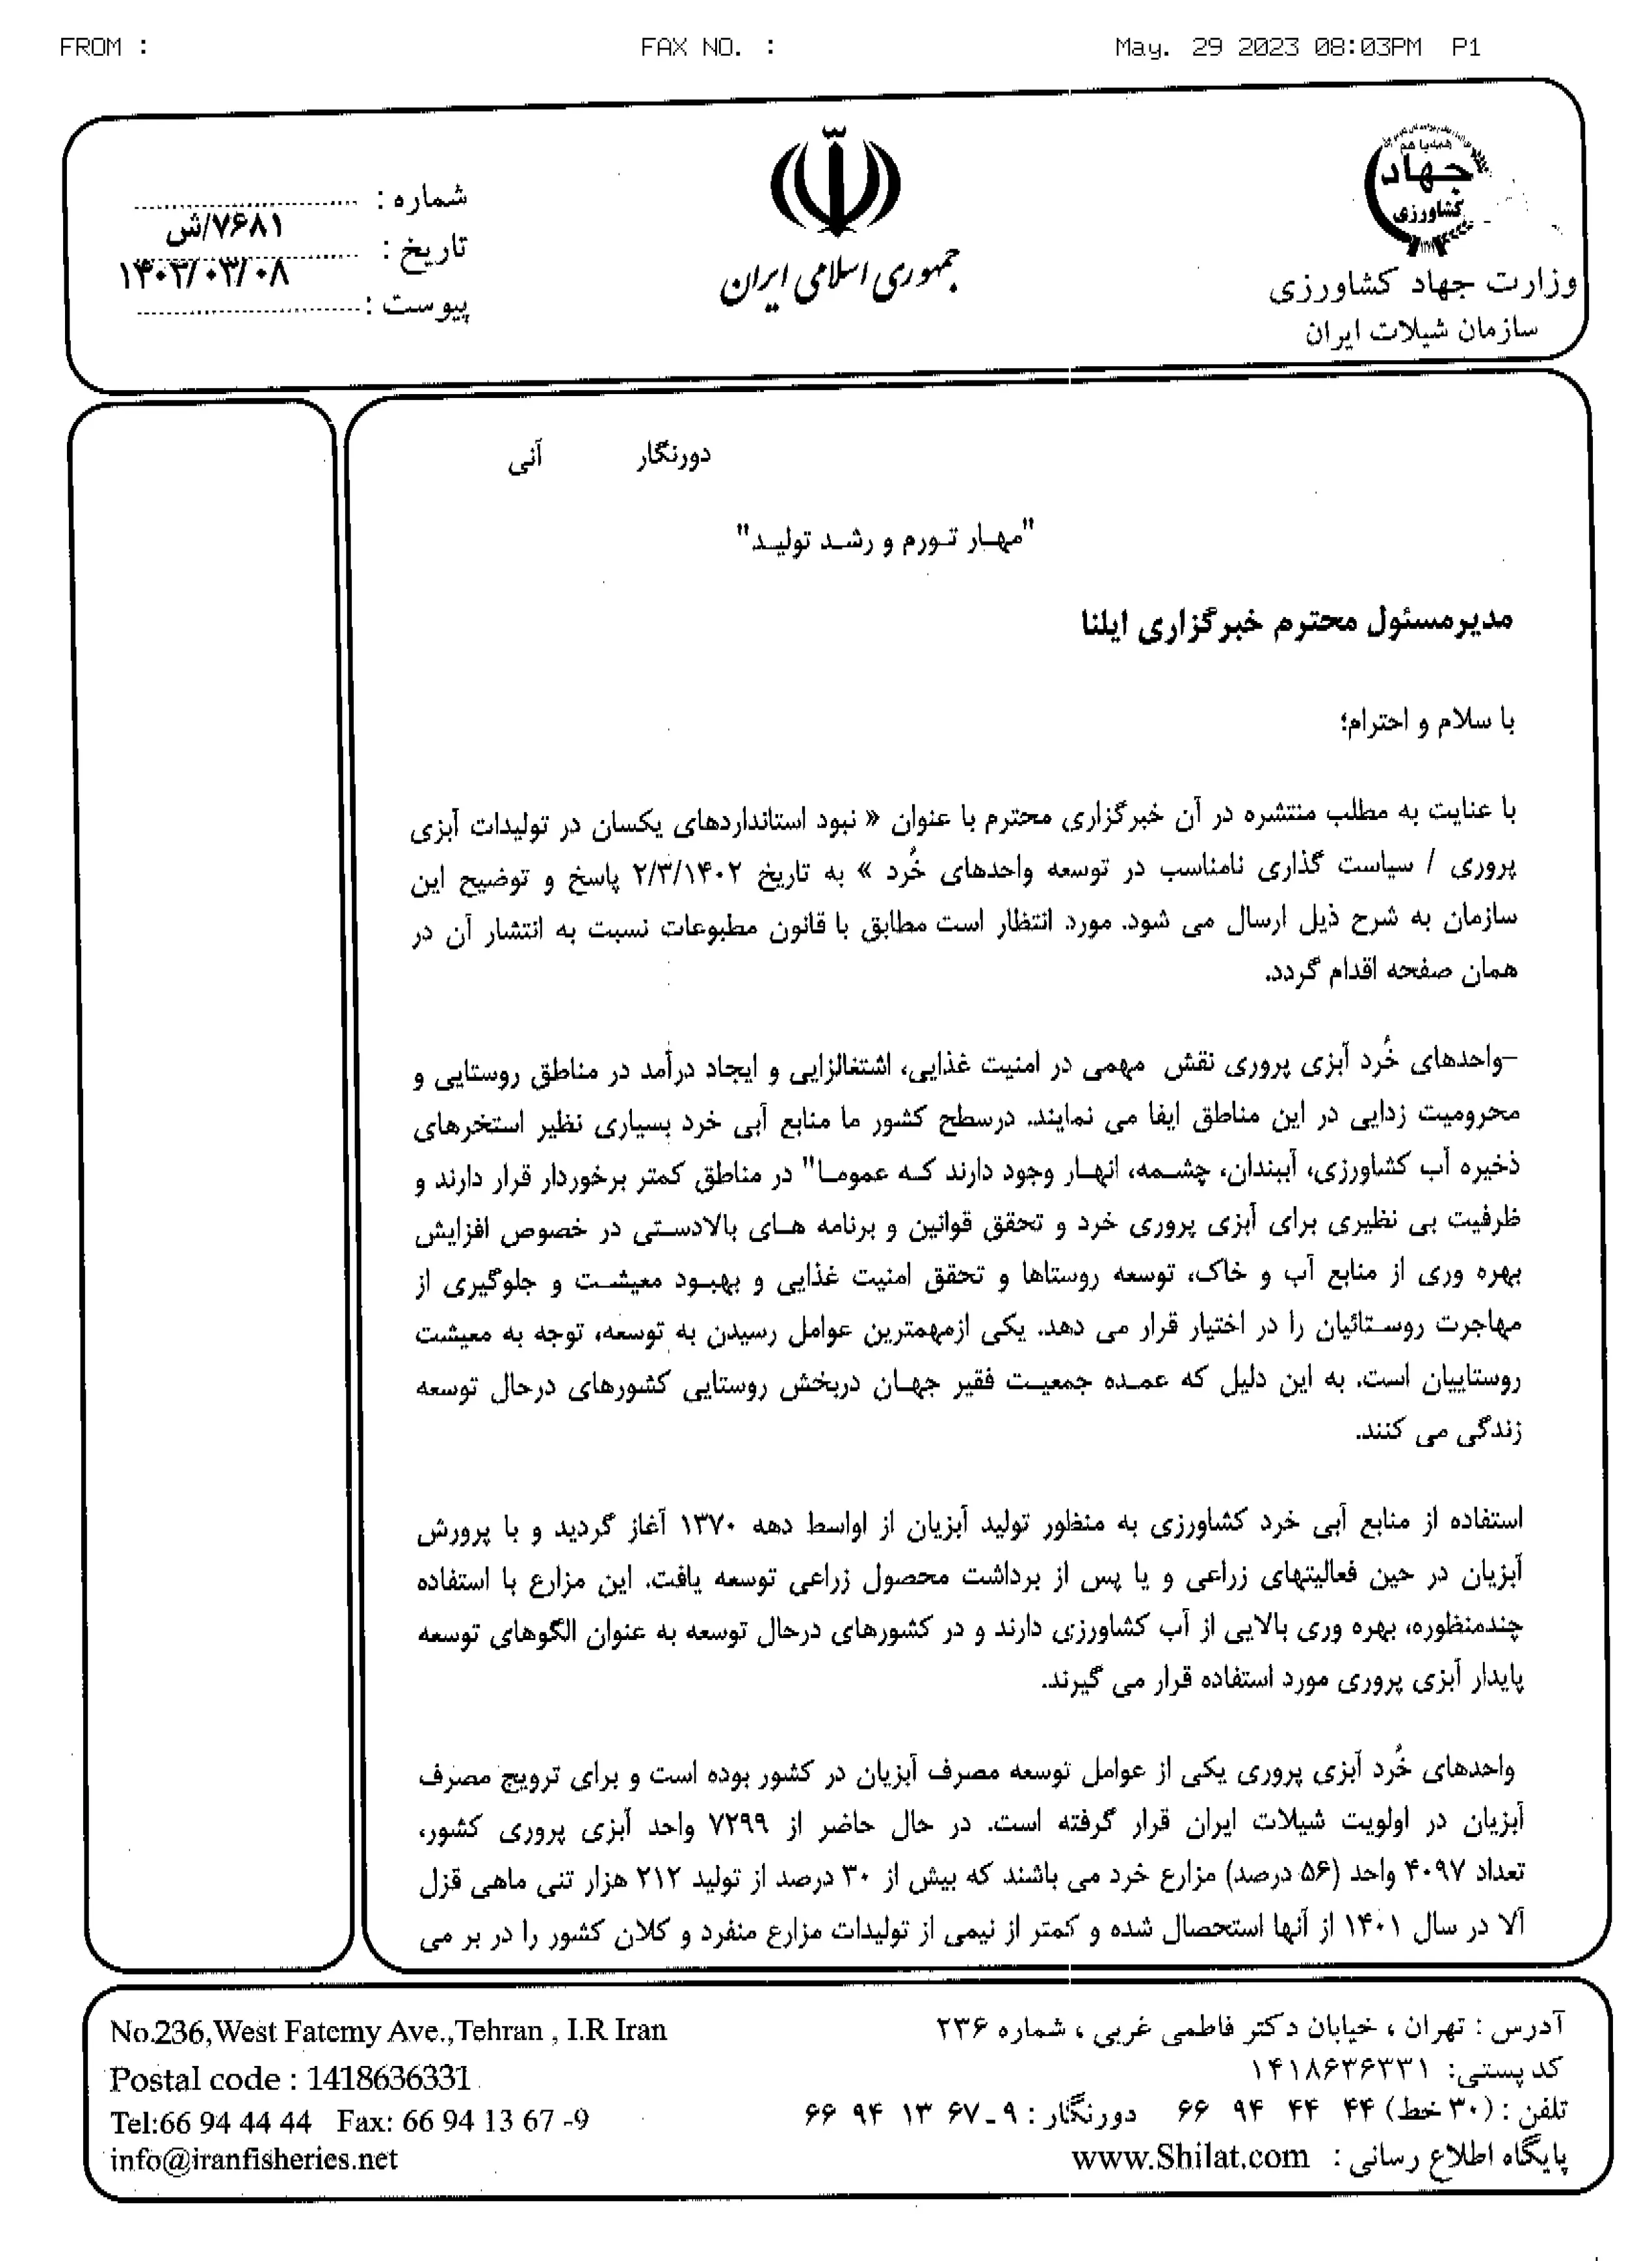 FROM : FAX NO. : May. 29 2023 08:03PM P1
همه با هم
جهاد
کشاورزی
وزارت جهاد کشاورزی
سازمان شیلات ایران
جمهوری اسلامی ایران
شماره :
۷۶۸۱/ش
تاریخ :
۱۴۰۲/۰۳/۰۸
پیوست :
دورنگار آنی
"مهـار تـورم و رشـد تولیـد"
مدیرمسئول محترم خبرگزاری ایلنا
با سلام و احترام؛
با عنایت به مطلب منتشره در آن خبرگزاری محترم با عنوان « نبود استانداردهای یکسان در تولیدات آبزی
پروری / سیاست گذاری نامناسب در توسعه واحدهای خُرد » به تاریخ ۲/۳/۱۴۰۲ پاسخ و توضیح این
سازمان به شرح ذیل ارسال می شود. مورد انتظار است مطابق با قانون مطبوعات نسبت به انتشار آن در
همان صفحه اقدام گردد.
-واحدهای خُرد آبزی پروری نقش مهمی در امنیت غذایی، اشتغالزایی و ایجاد درآمد در مناطق روستایی و
محرومیت زدایی در این مناطق ایفا می نمایند. درسطح کشور ما منابع آبی خرد بسیاری نظیر استخرهای
ذخیره آب کشاورزی، آببندان، چشـمه، انهـار وجود دارند کـه عمومـا" در مناطق کمتر برخوردار قرار دارند و
ظرفیت بی نظیری برای آبزی پروری خرد و تحقق قوانین و برنامه هـای بالادسـتی در خصوص افزایش
بهره وری از منابع آب و خاک، توسعه روستاها و تحقق امنیت غذایی و بهبـود معیشـت و جلوگیری از
مهاجرت روسـتائیان را در اختیار قرار می دهد. یکی ازمهمترین عوامل رسیدن به توسعه، توجه به معیشت
روستاییان است. به این دلیل که عمـده جمعیـت فقیر جهـان دربخش روستایی کشورهای درحال توسعه
زندگی می کنند.
استفاده از منابع آبی خرد کشاورزی به منظور تولید آبزیان از اواسط دهه ۱۳۷۰ آغاز گردید و با پرورش
آبزیان در حین فعالیتهای زراعی و یا پس از برداشت محصول زراعی توسعه یافت. این مزارع با استفاده
چندمنظوره، بهره وری بالایی از آب کشاورزی دارند و در کشورهای درحال توسعه به عنوان الگوهای توسعه
پایدار آبزی پروری مورد استفاده قرار می گیرند.
واحدهای خُرد آبزی پروری یکی از عوامل توسعه مصرف آبزیان در کشور بوده است و برای ترویج مصرف
آبزیان در اولویت شیلات ایران قرار گرفته است. در حال حاضر از ۷۲۹۹ واحد آبزی پروری کشور،
تعداد ۴۰۹۷ واحد (۵۶ درصد) مزارع خرد می باشند که بیش از ۳۰ درصد از تولید ۲۱۲ هزار تنی ماهی قزل
آلا در سال ۱۴۰۱ از آنها استحصال شده و کمتر از نیمی از تولیدات مزارع منفرد و کلان کشور را در بر می
آدرس : تهران ، خیابان دکتر فاطمی غربی ، شماره ۲۳۶
کد پستی: ۱۴۱۸۶۳۶۳۳۱
تلفن : (۳۰ خط) ۴۴ ۴۴ ۹۴ ۶۶ دورنگار : ۹-۶۷ ۱۳ ۹۴ ۶۶
پایگاه اطلاع رسانی : www.Shilat.com
No.236,West Fatemy Ave.,Tehran , I.R Iran
Postal code : 1418636331
Tel:66 94 44 44 Fax: 66 94 13 67 -9
info@iranfisheries.net